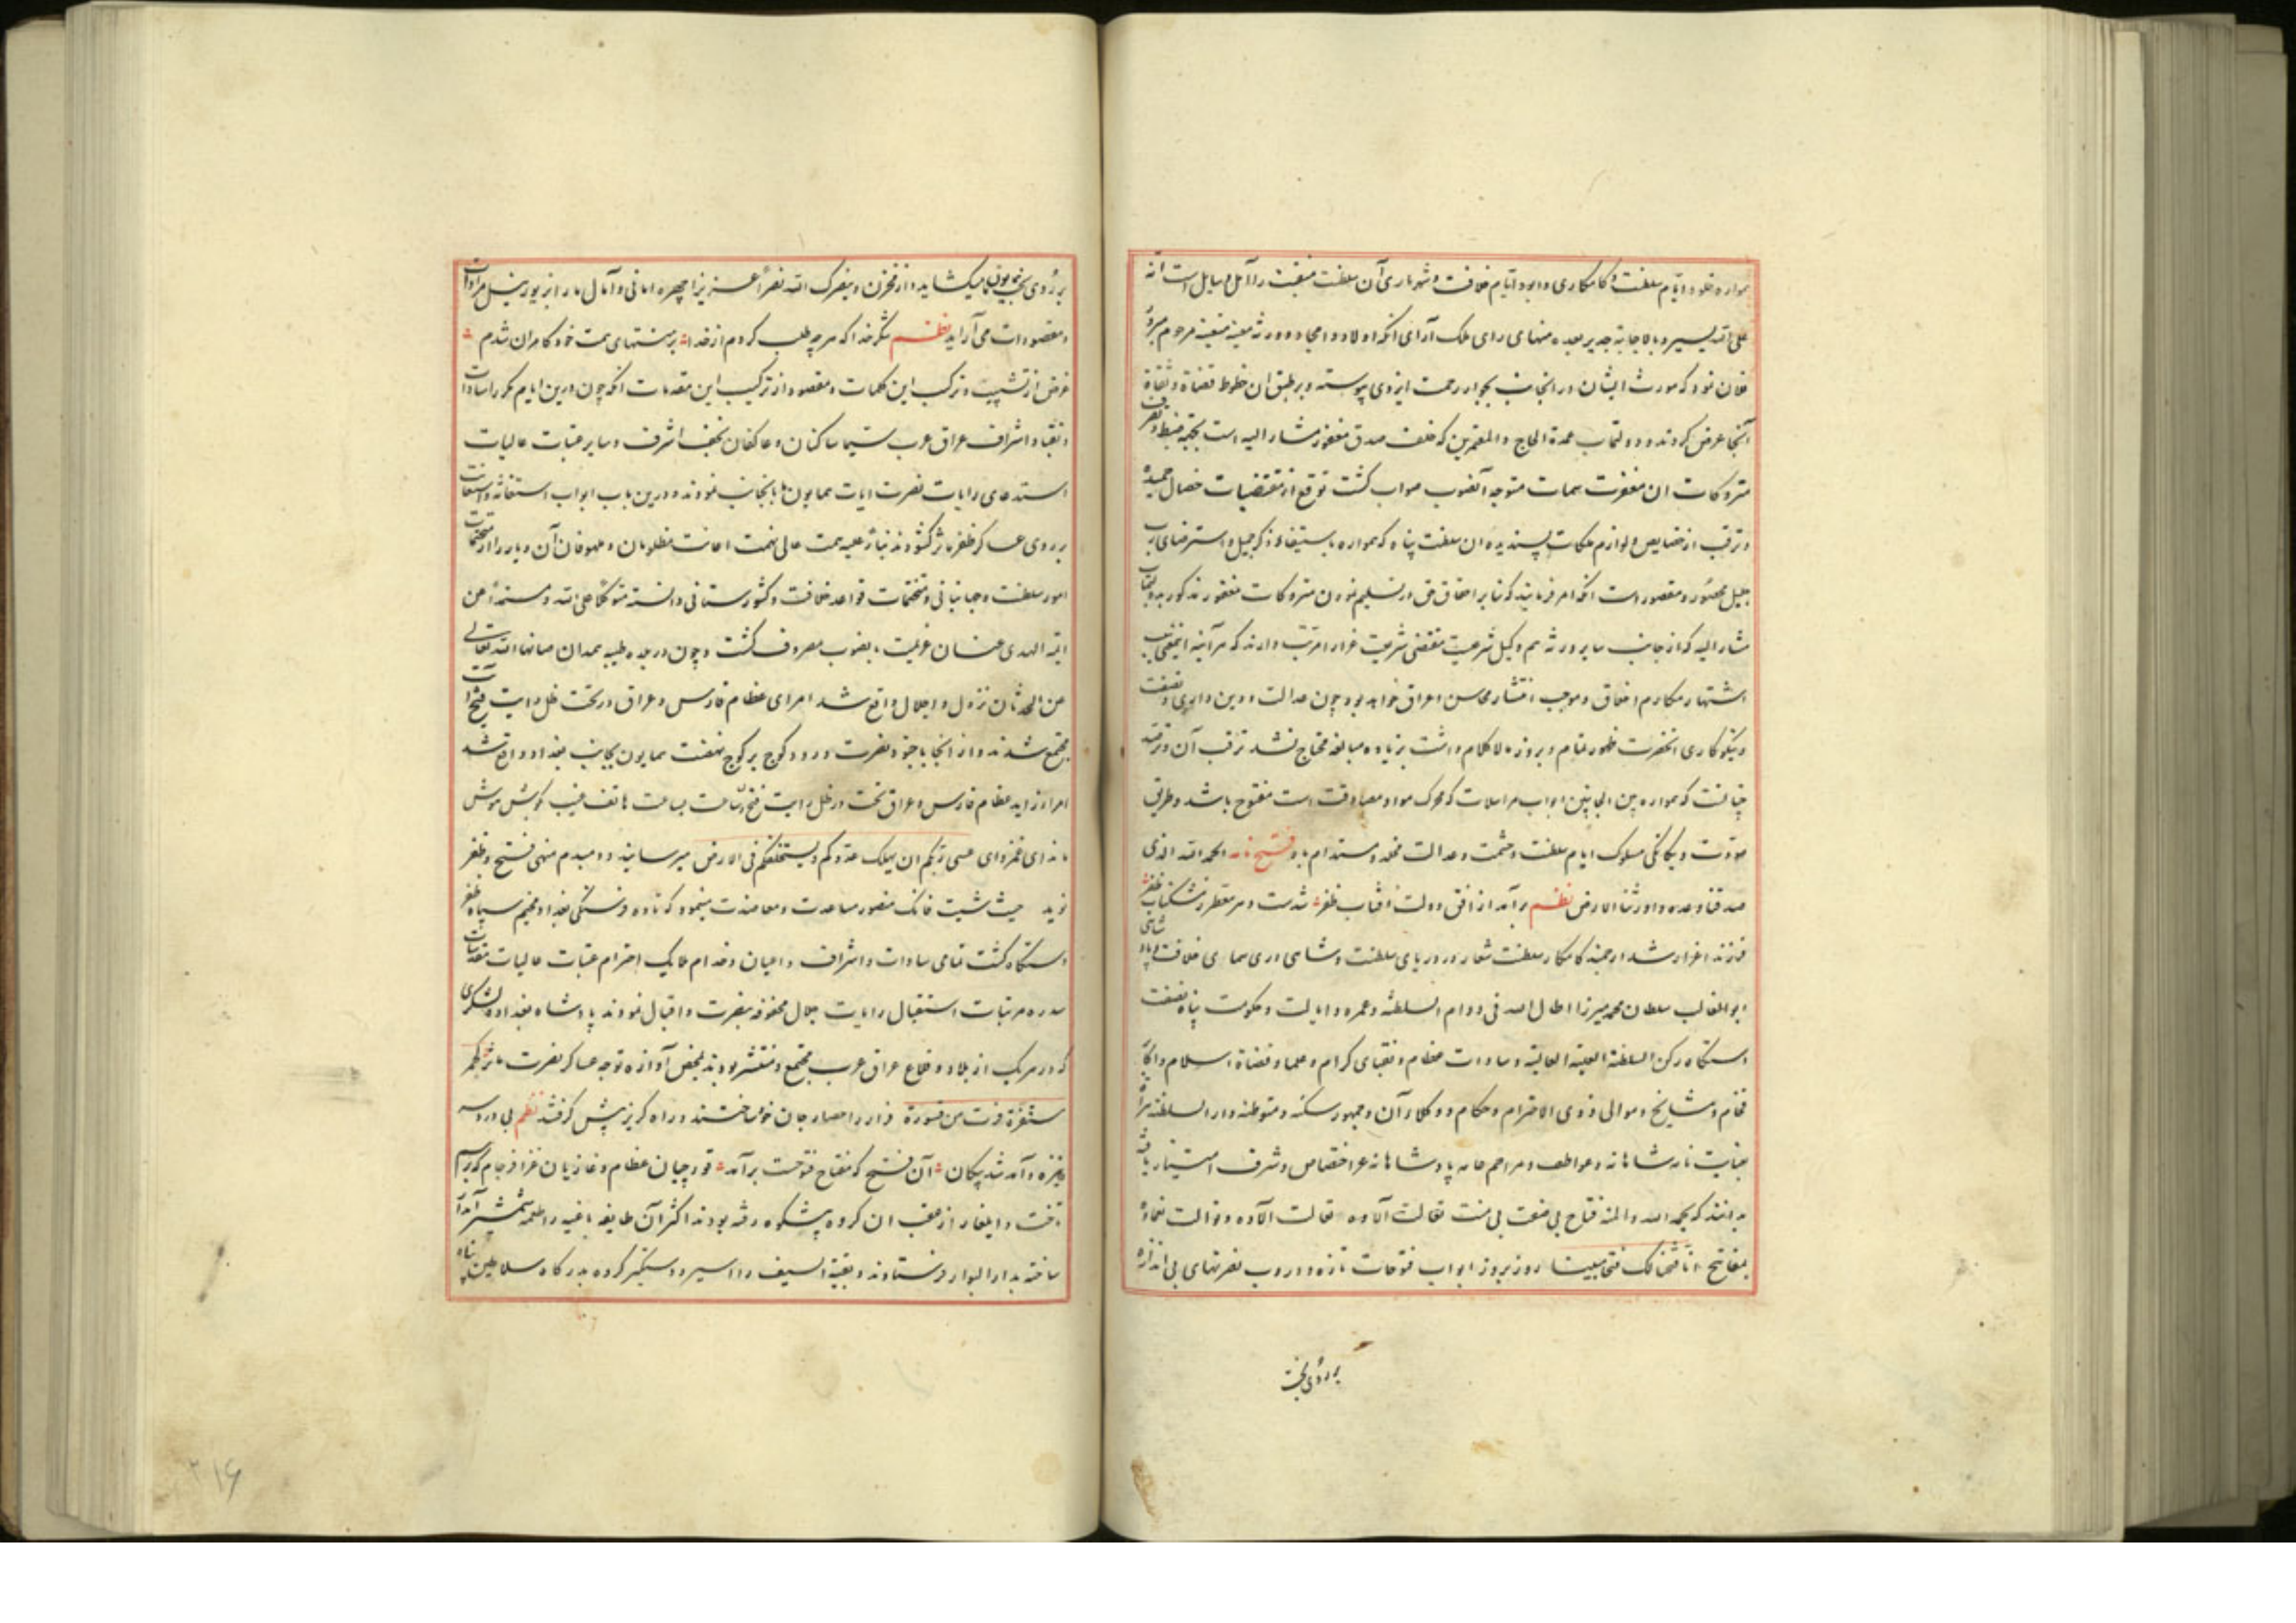 همواره خلود ایام سلطنت و کامکاری و ابود ایام خلافت و شهریاری آن سلطنت منقبت را آمل و سایل است انه
علی الله یسیر و بالاجابة جدیر بعده منهای رای ملک آرای انکه اولاد و امجاد و ورثه مرحوم مبرور
فلان نمود که مورث ایشان در انجانب بجوار رحمت ایزدی پیوسته و بر طبق ان خطوط قضاة و ثقاة
آنجا عرض کردند و عمدة الحاج و المعتمرین که خلف صدق مغفور مشار الیه است بجهة ضبط و تصرف
متروکات ان مغفرت سمات متوجه آنصوب صواب گشت توقع از مقتضیات خصال حمیده
و ترقب از خصایص و لوازم ملکات پسندیده ان سلطنت پناه که همواره باستیفاء ذکر جمیل و استرضای رب
جلیل محصور و مقصور است انکه امر فرمایند که بنابر احقاق حق در تسلیم نمودن متروکات مغفور مذکور بدو
مشار الیه که از جانب سایر ورثه هم وکیل شرعیت مقتضی شریعت غرا را مرتب دارند که هر آینه اینمعنی سبب
اشتهار مکارم اخلاق و موجب انتشار محاسن اعراق خواهد بود چون عدالت و دین داری و نصفت
و نیکو کاری انحضرت ظهور تمام و بروز لا کلام داشت بزیاده مبالغه محتاج نشد ترقب آن و ترصد
چنانست که همواره بین الجانبین ابواب مراسلات که محرک مواد مصادقت است مفتوح باشد و طریق
مودت و یکانکی مسلوک ایام سلطنت و حشمت و عدالت مخلد و مستدام باد فتح نامه الحمد الله الذی
صدقنا وعده و اورثنا الارض نظم برآمد از افق دولت افتاب ظفر
فرزند اعز ارشد ارجمند کامکار سلطنت شعار در دریای سلطنت و شاهی دری سمای خلافت و پادشاهی
ابو الغالب سلطان محمد میرزا اطال الله فی دوام السلطنة و عمره و ایالت و حکومت پناه نصفت
دستگاه رکن السلطنة العلیة العالیة و سادات عظام و نقبای کرام و علما و قضاة اسلام و اکابر
فخام و مشایخ و موالی ذوی الاحترام و حکام و وکلاء آن و جمهور سکنه و متوطنه دار السلطنه هراة
بعنایت شاهانه و عواطف و مراحم پادشاهانه عز اختصاص و شرف امتیاز یافته
بدانند که بحمد الله و المنه فتاح بی ضنت بی منت تعالت آلاوه و توالت نعماوه
بمفاتیح انا فتحنا لک فتحا مبینا روز بروز ابواب فتوحات تازه و دروب نصرتهای بی اندازه
بر روی بخت
بر روی بخت همایون ما میکشاید و از مخزن و ینصرک الله نصراً عزیزا چهره امانی و آمال ما را بزیور نیل مرادات
و مقصودات می آراید نظم شکر خدا که هر چه طلب کردم از خدا بر منتهای همت خود کامران شدم
غرض از تشبیب و ترکیب این کلمات و مقصود از ترتیب این مقدمات انکه چون درین ایام مکرر سادات
و نقبا و اشراف عراق عرب سیما ساکنان و عاکفان نجف اشرف و سایر عتبات عالیات
استدعای رایات نصرت ایات همایون ما بانجانب نمودند و درین باب ابواب استغاثه و استعانت
بر روی عساکر ظفر ماثر گشودند بناءً علیه همت عالی نهمت اعانت مظلومان و ملهوفان آن دیار را از متحتمات
امور سلطنت و جهانبانی و متختمات قواعد خلافت و کشورستانی دانسته متوکلاً علی الله و مستمداً من
ائمة الهدی عنان عزیمت بصوب مصروف گشت و چون در بلده طیبه همدان صانها الله تعالی
عن الحدثان نزول و اجلال واقع شد امرای عظام فارس و عراق در تحت ظل رایت فتح آیت
مجتمع شدند و از انجا با جنود نصرت ورود کوچ بر کوچ نهضت همایون بجانب بغداد واقع شد
امراء عظام فارس و عراق تحت ظل رایت فتح ساعت بساعت هاتف غیب بگوش هوش
ندای غمزدای عسی ربکم ان یهلک عدوکم و یستخلفکم فی الارض میرسانید و دمبدم منهی فتح و ظفر
نوید حیث شئت فانک منصور مساعدت و معاضدت مینمود که تا ده فرسنگی بغداد مخیم سپاه ظفر
دستگاه گشت تمامی سادات و اشراف و اعیان و خدام احترام عتبات عالیات
سدره مرتبات استقبال رایات جلال محفوفه بنصرت و اقبال نمودند پادشاه بغداد و لشکری
که در هر یک از بلاد و قلاع عراق عرب مجتمع و منتشر بودند بمحض آوازه توجه عساکر نصرت ماثر کحمر
مستنفرة فرت من قسورة فرار را حصار جان خود ساختند و راه گریز پیش گرفتند نظم بی درد سر
نیزه و آمد شد پیکان آن فتح که مفتاح فتوحست برآمد قورچیان عظام و غازیان غزا فرجام که برسم
تاخت و ایلغار از عقب ان کروه بیشکوه رفته بودند اکثر آن طایفه باغیه را طعمه شمشیر آبدار
ساخته بدار البوار فرستادند و بقیة السیف را اسیر و دستگیر کرده بدرگاه سلاطین پناه
۲۱۶